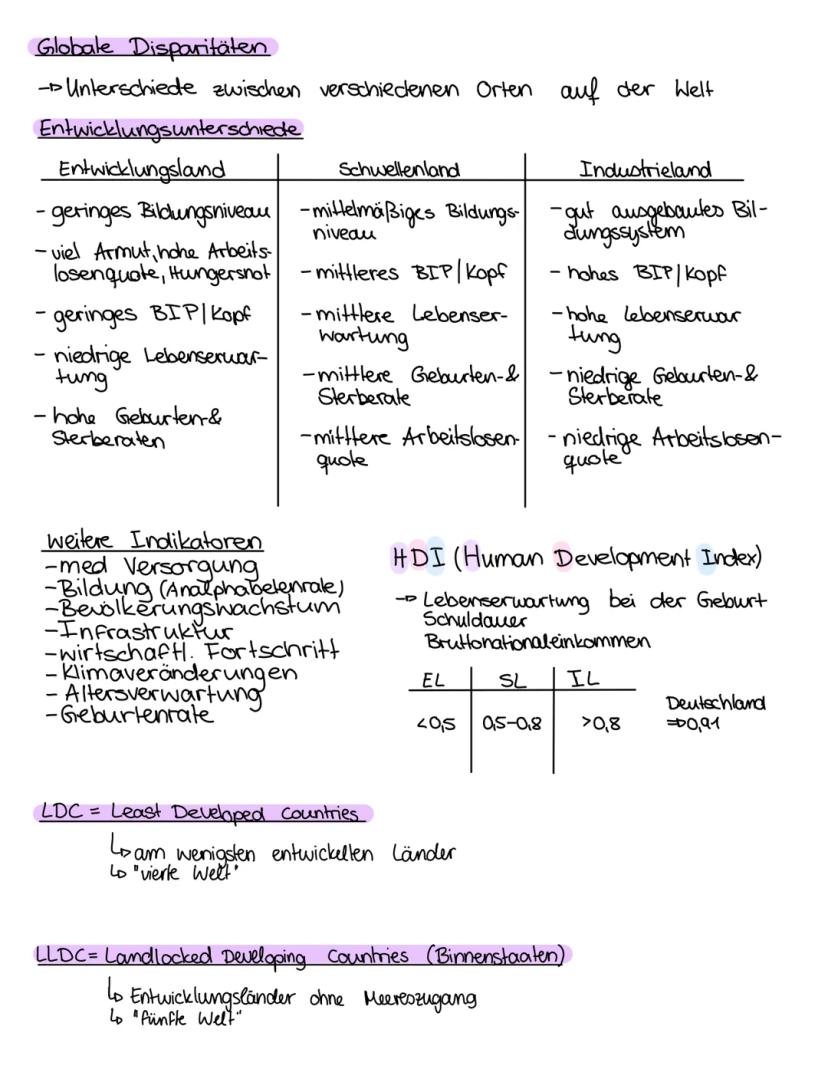 Globale Disparitäten
→ Unterschiede zwischen verschiedenen Orten auf der Welt
Entwicklungsunterschiede
Entwicklungsland
- geringes Bildungsniveau
- viel Armut, hohe Arbeits-
losenquote, Hungersnot
- geringes BIP/Kopf
- niedrige Lebenserwar-
tung
- hohe Geburten-&
Sterberaten
Schwellenland
- mittelmäßiges Bildungs-
niveau
- mittleres BIP/Kopf
- mittlere Lebenser-
wartung
- mittlere Geburten-&
Sterberate
- mittlere Arbeitslosen-
quote
Industrieland
- gut ausgebautes Bil-
dungssystem
- hohes BIP/Kopf
- hohe Lebenserwar
tung
- niedrige Geburten-&
Sterberate
- niedrige Arbeitslosen-
quote
weitere Indikatoren
- med Versorgung
- Bildung (Analphabetenrate)
- Bevölkerungswachstum
- Infrastruktur
- wirtschaftl. Fortschritt
- Klimaveränderungen
- Altersverwartung
- Geburtenrate
HDI (Human Development Index)
→ Lebenserwartung bei der Geburt
Schuldauer
Bruttonationaleinkommen
EL SL IL
<0,5 0,5-0,8 >0,8
Deutschland
⇒0,91
LDC = Least Developed Countries
↳ am wenigsten entwickelten Länder
↳ "vierte Welt"
LLDC = Landlocked Developing Countries (Binnenstaaten)
↳ Entwicklungsländer ohne Meereszugang
↳ "fünfte Welt"